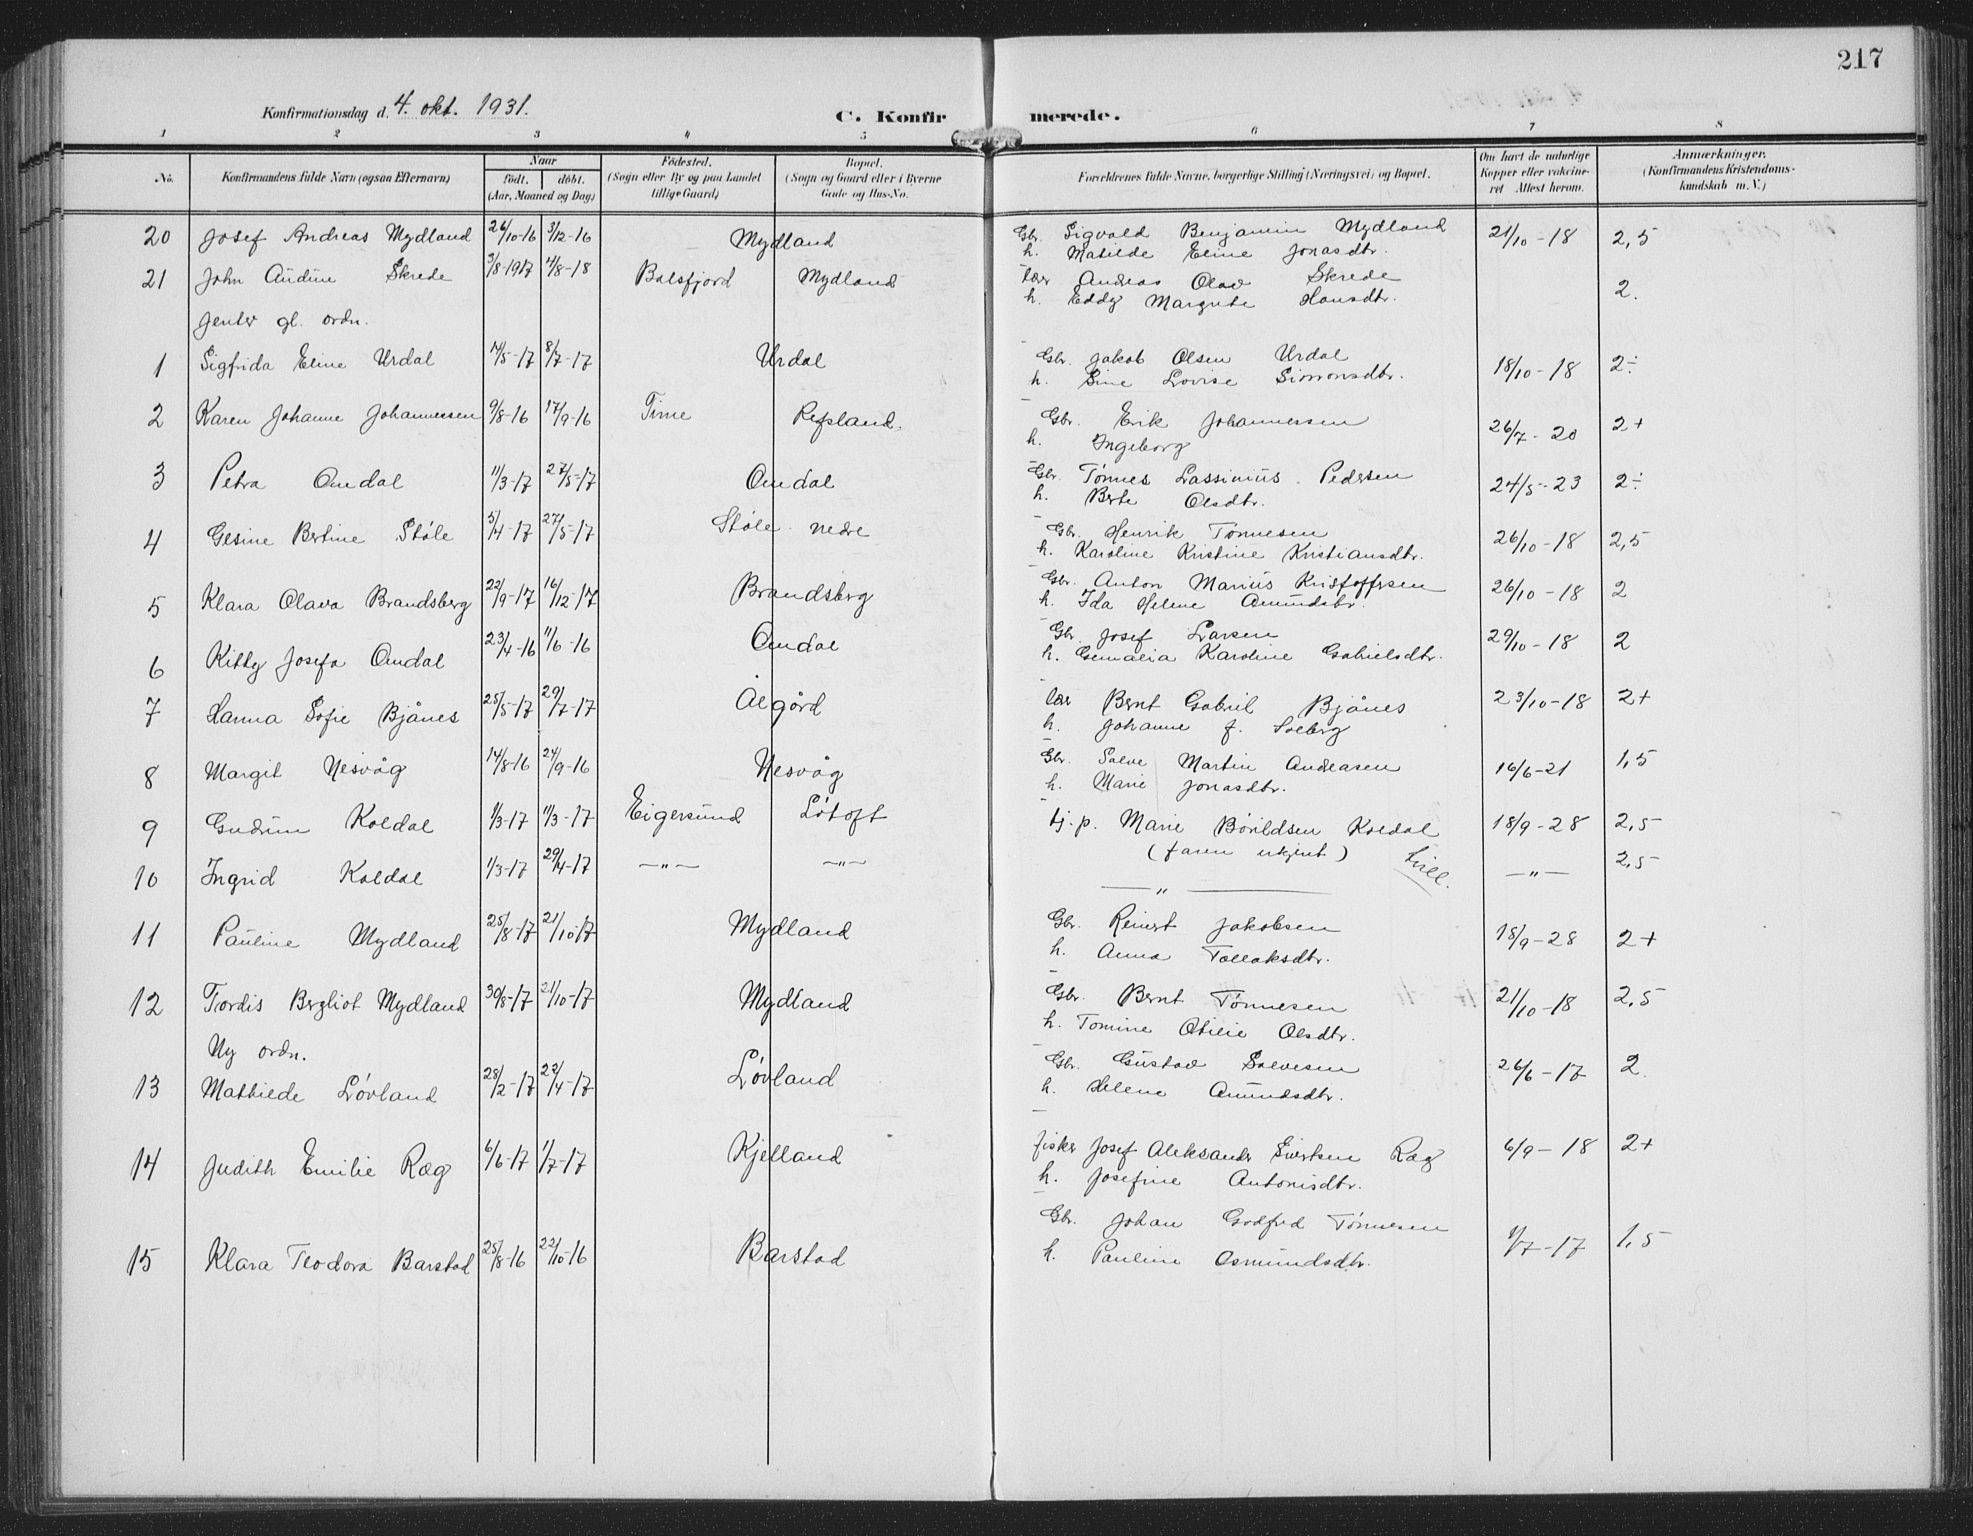 217
Konfirmationsdag d. 4. okt. 1931.
C. Konfirmerede.
1 2 3 4 5 6 7 8
No. Konfirmandens fulde Navn (ogsaa Efternavn) Naar födt. döbt. (Aar, Maaned og Dag) Födested. (Sogn eller By og paa Landet tillige Gaard) Bopæl. (Sogn og Gaard eller i Byerne Gade og Hus-No. Forældrenes fulde Navne, borgerlige Stilling (Næringsvei) og Bopæl. Om havt de naturlige Kopper eller vakcineret Attest herom. Anmærkninger. (Konfirmandens Kristendomskundskab m. V.)
20 Josef Andreas Mydland 26/10-16 3/12-16 Mydland Gbr. Sigvald Benjamin Mydland 21/10-18 2,5
h. Matilde Eline Jonasdtr.
21 John Audun Skrede 3/8-1917 4/8-18 Balsfjord Mydland lær Andreas Olav Skrede 2.
h. Eddy Margrete Hansdtr.
Jenter gl. ordn.
1 Sigfrida Eline Urdal 14/5-17 8/7-17 Urdal Gbr. Jakob Olsen Urdal 18/10-18 2÷
h. Sine Lovise Simonsdtr.
2 Karen Johanne Johannessen 9/8-16 17/9-16 Time Refsland. Gbr. Erik Johannessen 26/7-20 2+
h. Ingeborg
3 Petra Omdal 11/3-17 27/5-17 Omdal Gbr. Tønnes Lassinius Pedersen 24/5-23 2÷
h. Berte Olsdtr.
4 Gesine Bertine Støle 5/4-17 27/5-17 Støle nedre Gbr. Henrik Tønnesen 26/10-18 2,5
h. Karoline Kristine Kristiansdtr.
5 Klara Olava Brandsberg 22/9-17 16/12-17 Brandsberg Gbr. Anton Marius Kristoffersen 26/10-18 2
h. Ida Helene Amundsdtr.
6 Kitty Josefa Omdal 23/4-16 11/6-16 Omdal Gbr. Josef Larsen 29/10-18 2
h. Karoline Gabrielsdtr.
7 Hanna Sofie Bjånes 25/5-17 29/7-17 Ålgård lær Bernt Gabriel Bjånes 23/10-18 2+
h. Johanne f. Solberg
8 Margit Nesvåg 14/8-16 24/9-16 Nesvåg Gbr. Salve Martin Andreasen 16/6-21 1,5
h. Marie Jonasdtr.
9 Gudrun Koldal 1/3-17 11/3-17 Eigersund Løtoft tj.p. Marie Bårildsen Koldal 18/9-28 2,5
(faren ukjent) tvill.
10 Ingrid Koldal 1/3-17 29/4-17 —"— —"— —"— —"— 2,5
11 Pauline Mydland 25/8-17 21/10-17 Mydland Gbr. Reinert Jakobsen 18/9-28 2+
h. Anna Tollaksdtr.
12 Tordis Bergliot Mydland 30/8-17 21/10-17 Mydland Gbr. Bernt Tønnesen 21/10-18 2,5
h. Tomine Otilie Olsdtr.
Ny ordn.
13 Mathilde Løvland 28/2-17 22/4-17 Løvland Gbr. Gustav Salvesen 26/6-17 2
h. Helene Amundsdtr.
14 Judith Emilie Ræg 6/6-17 1/7-17 Kjelland fisker Josef Aleksander Sivertsen Ræg 6/9-18 2+
h. Josefine Antonisdtr.
15 Klara Teodora Barstad 25/8-16 22/10-16 Barstad Gbr. Johan Godfred Tønnesen 4/7-17 1,5
h. Pauline Osmundsdtr.